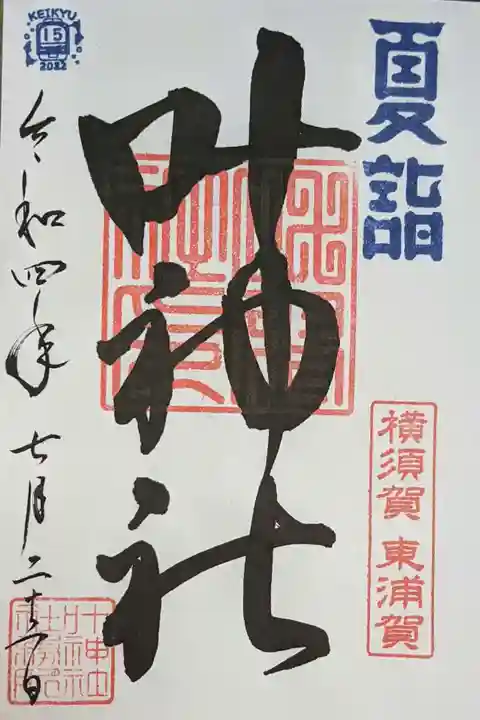 夏詣
横須賀 東浦賀
叶神社
KEIKYU
15
2022
令和四年 七月二十六日